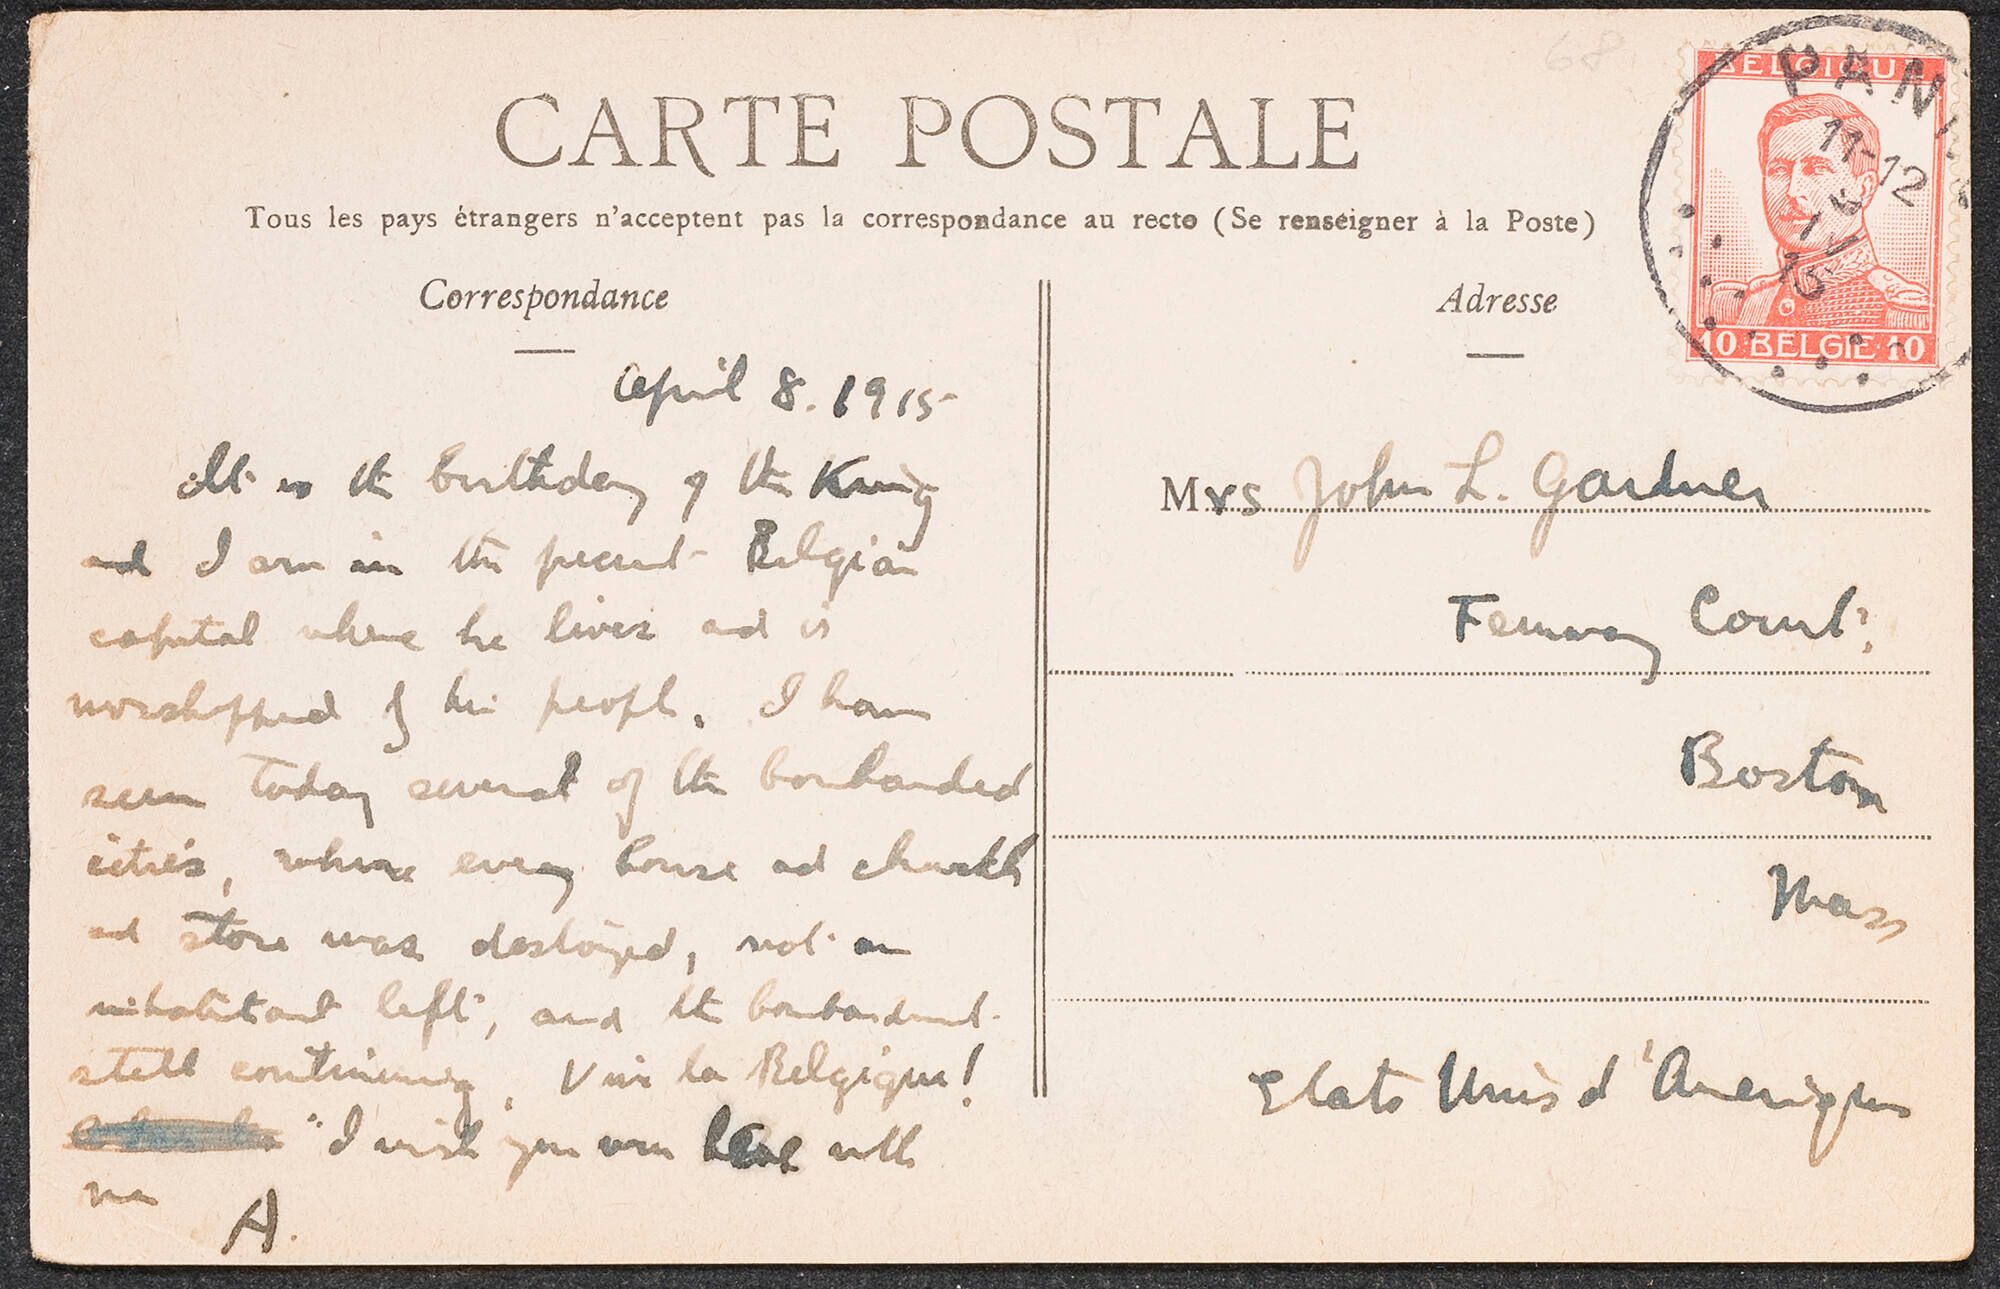 CARTE POSTALE
Tous les pays étrangers n'acceptent pas la correspondance au recto (Se renseigner à la Poste)
Correspondance
April 8. 1915
It is the birthday of the King
and I am in the present Belgian
capital where he lives and is
worshipped of his people. I have
seen today several of the bombarded
cities, where every house and church
and store was destroyed, not an
inhabitant left, and the bombardment
still continuing. Vive la Belgique!
I wish you were here with
me
A.
Adresse
Mrs John L. Gardner
Fenway Court.
Boston
Mass
Etats Unis d'Amerique
BELGIQUE
10 BELGIE 10
PANN
11-12
68